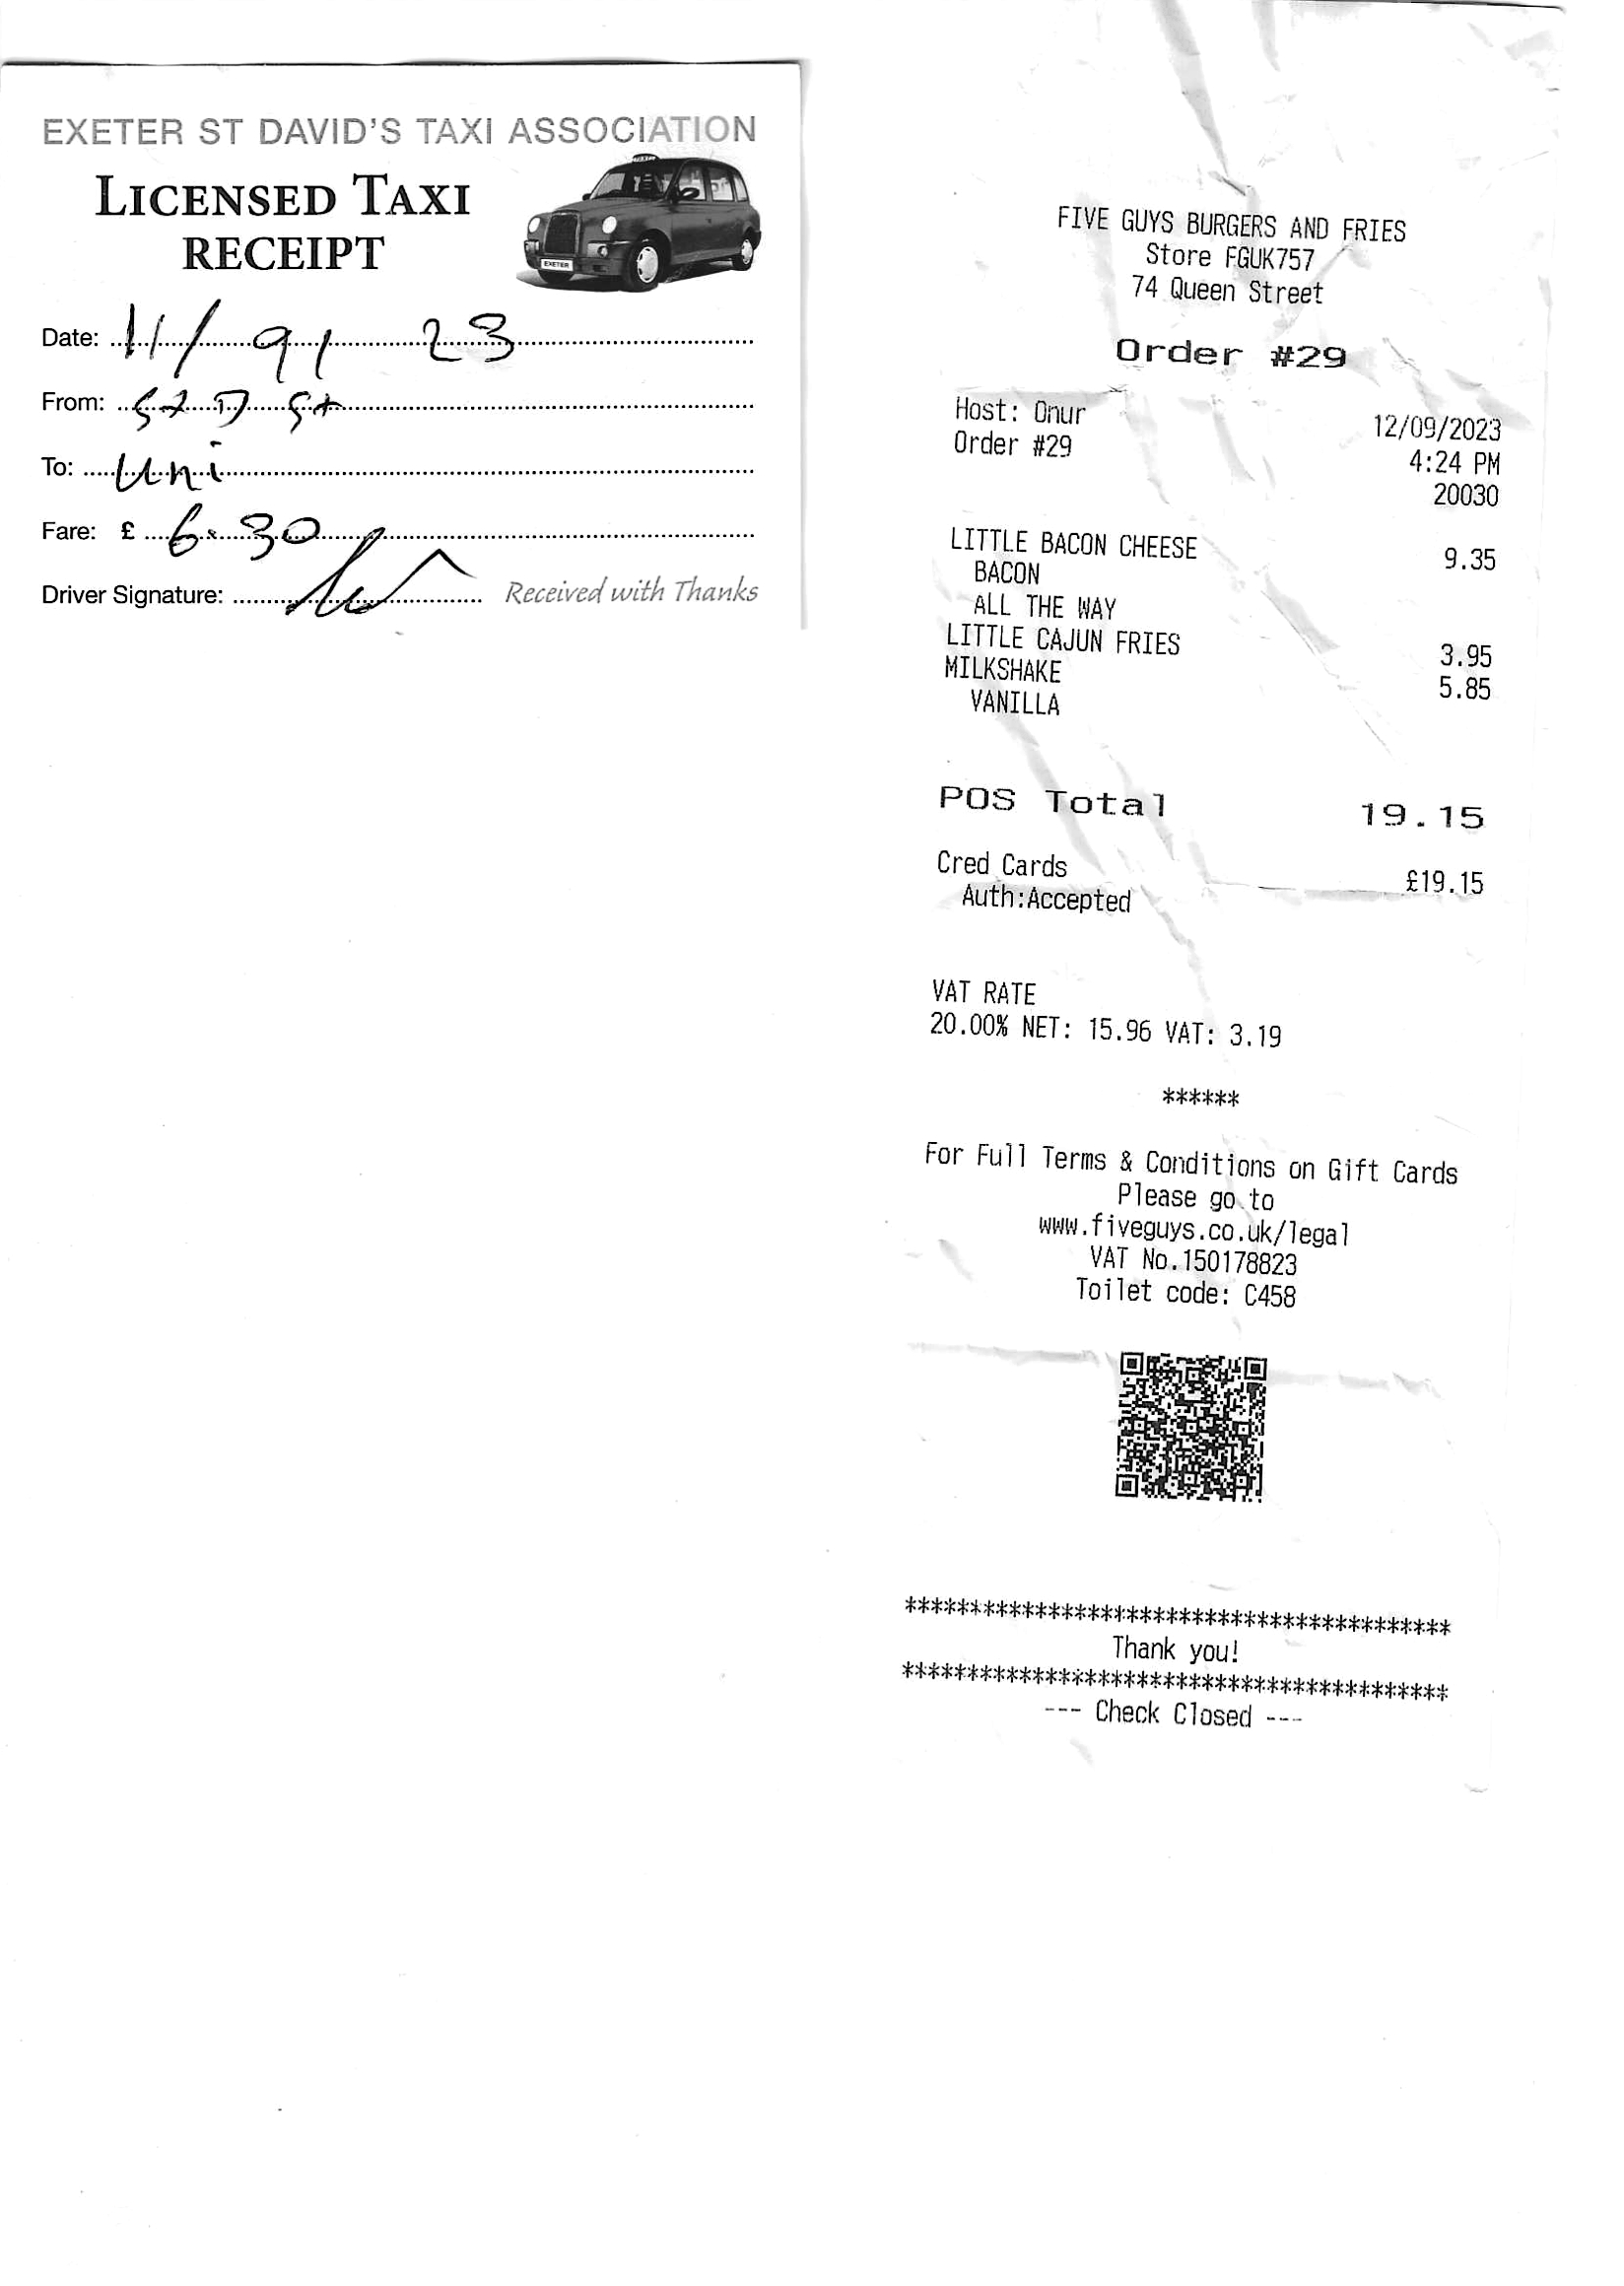 EXETER ST DAVID'S TAXI ASSOCIATION
LICENSED TAXI
RECEIPT
EXETER
Date: 11/ 9/ 23
From: St D St
To: Uni
Fare: £ 6.30
Driver Signature: Received with Thanks
FIVE GUYS BURGERS AND FRIES
Store FGUK757
74 Queen Street
Order #29
Host: Onur 12/09/2023
Order #29 4:24 PM
20030
LITTLE BACON CHEESE 9.35
BACON
ALL THE WAY
LITTLE CAJUN FRIES 3.95
MILKSHAKE 5.85
VANILLA
POS Total 19.15
Cred Cards £19.15
Auth:Accepted
VAT RATE
20.00% NET: 15.96 VAT: 3.19
******
For Full Terms & Conditions on Gift Cards
Please go to
www.fiveguys.co.uk/legal
VAT No.150178823
Toilet code: C458
******************************************
Thank you!
******************************************
--- Check Closed ---